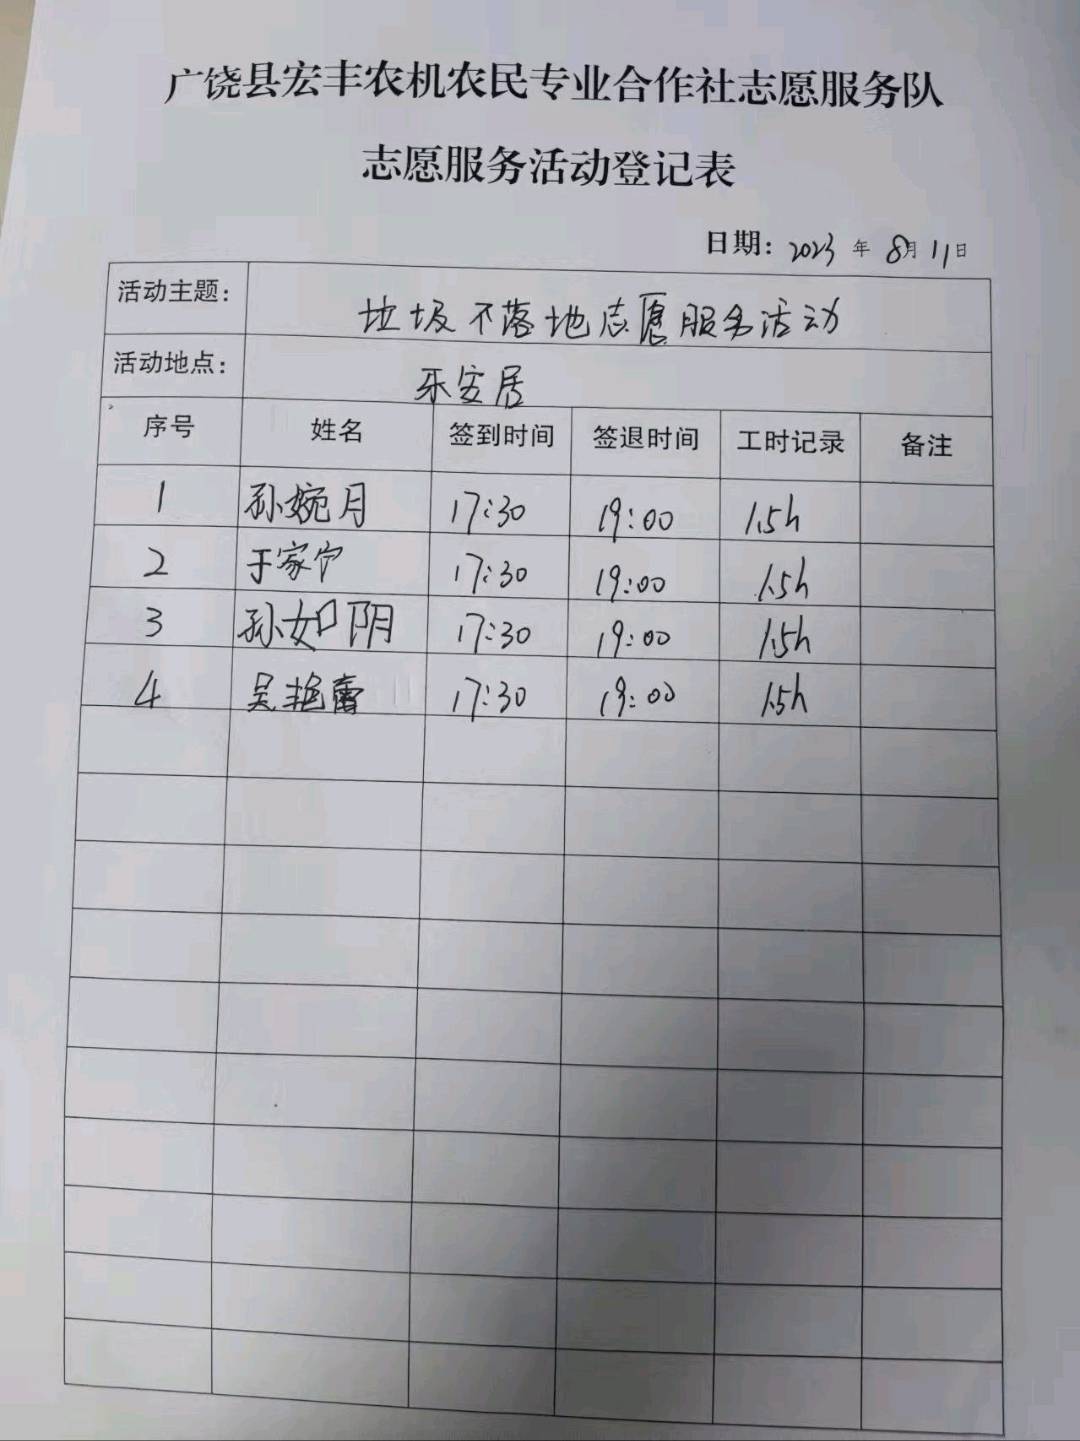 广饶县宏丰农机农民专业合作社志愿服务队
志愿服务活动登记表
日期：2023 年 8月 11日
活动主题： 垃圾不落地志愿服务活动
活动地点： 乐安居
序号 姓名 签到时间 签退时间 工时记录 备注
1 孙婉月 17:30 19:00 1.5h
2 于家宁 17:30 19:00 1.5h
3 孙如阴 17:30 19:00 1.5h
4 吴艳蕾 17:30 19:00 1.5h